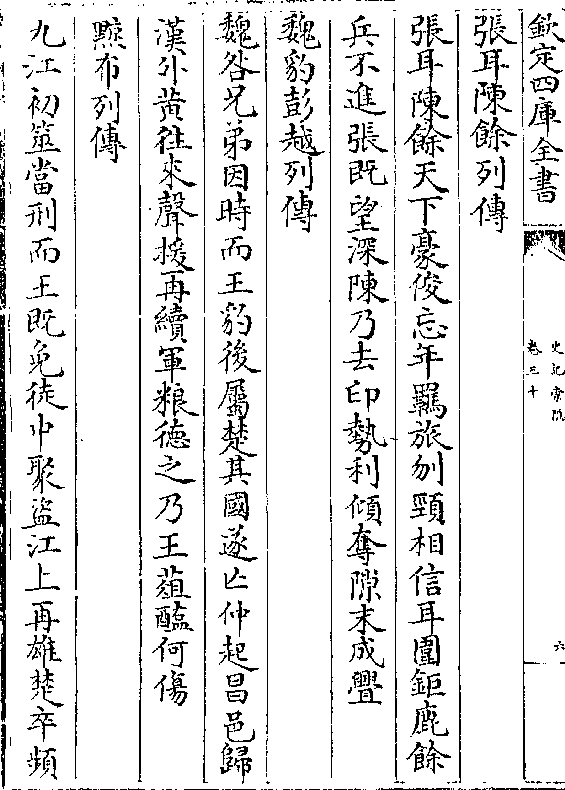 欽定四庫全書
史記索隱
卷三十
六
張耳陳餘列傳
張耳陳餘天下豪俊忘年羈旅刎頸相信耳圍鉅鹿餘
兵不進張既望深陳乃去印勢利傾奪隙末成釁
魏豹彭越列傳
魏咎兄弟因時而王豹後屬楚其國遂亡仲起昌邑歸
漢外黃往來聲援再續軍粮德之乃王葅醢何傷
黥布列傳
九江初筮當刑而王既免徒中聚盜江上再雄楚卒頻